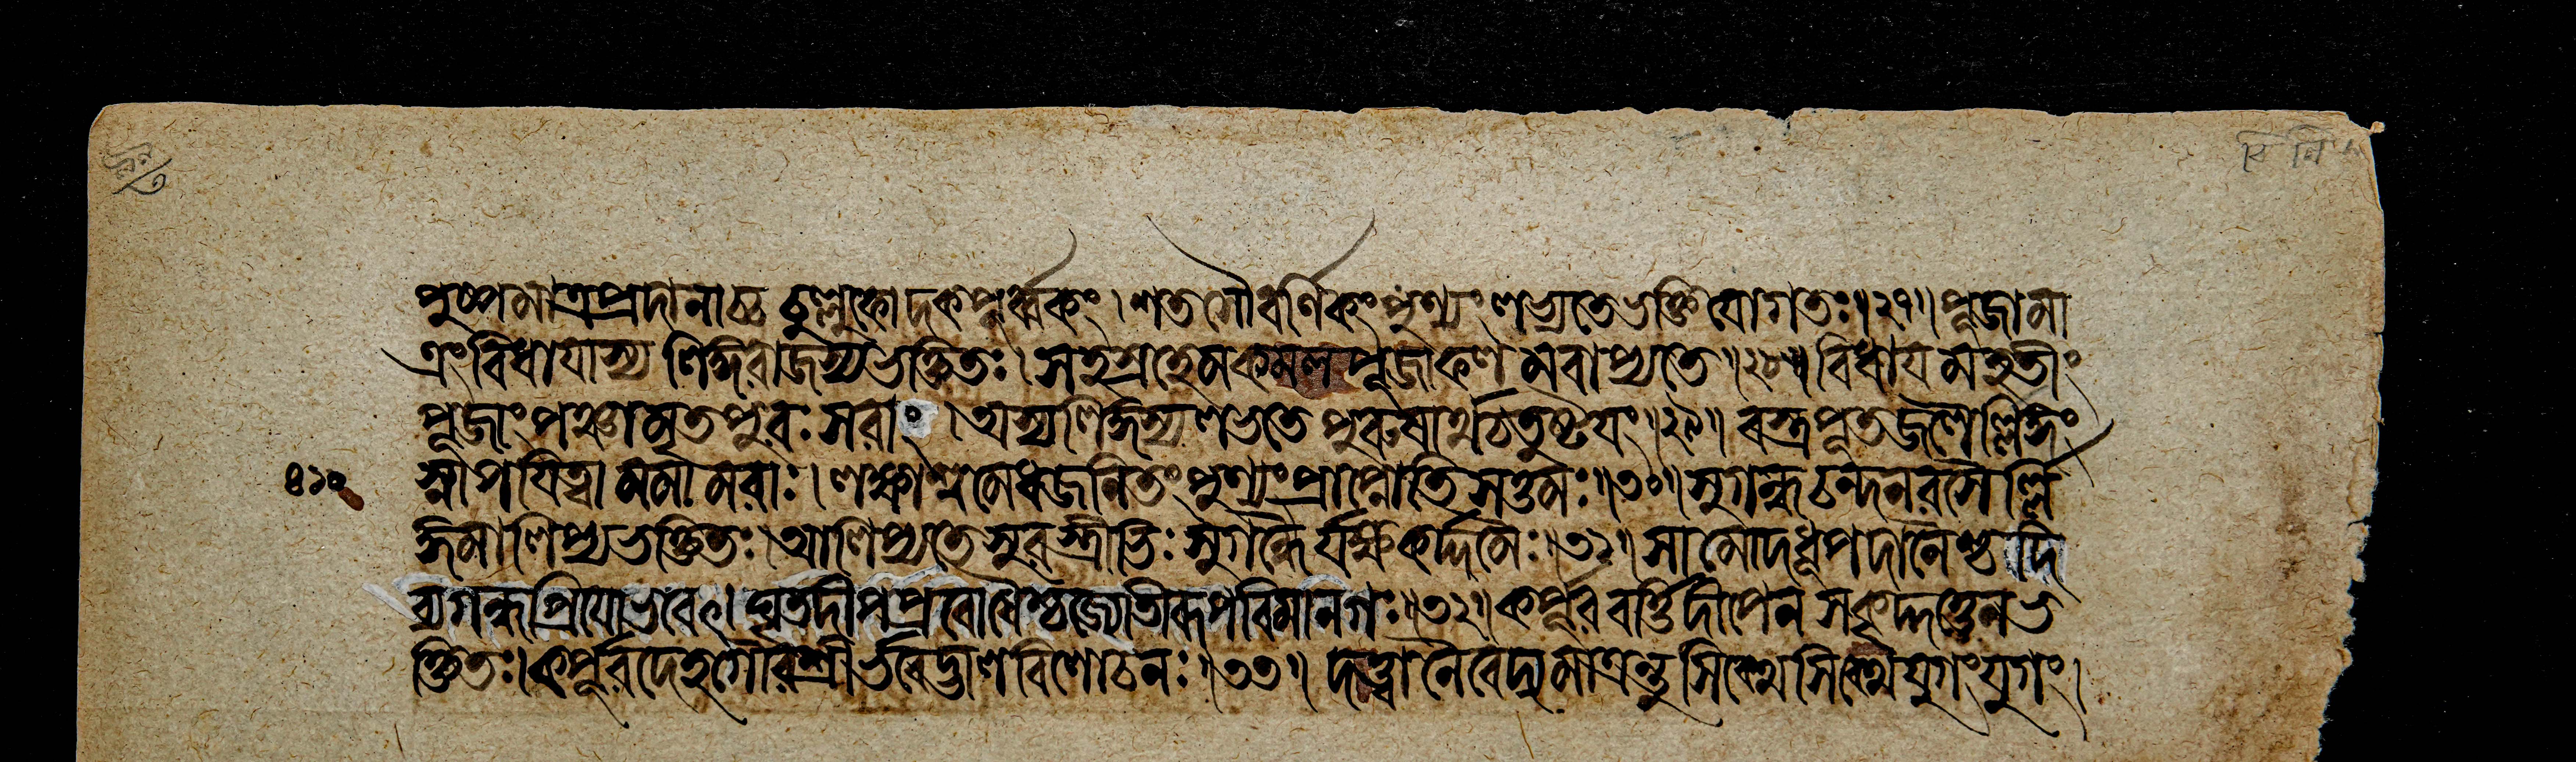 পুষ্পমাত্রপ্রদানাচ্চ চুলুকোদকপূর্ব্বকং।শতসৌবর্ণিকংপুণ্যংলভ্যতেভক্তিযোগতঃ॥২৭॥পূজামা
ত্রংবিধাযাস্য লিঙ্গরাজস্যভক্তিতঃ।সহস্রহেমকমলপূজাফলমবাপ্যতে॥২৮॥বিধায মহতীং
পূজাংপঞ্চামৃতপুরঃসরাং।অস্যলিঙ্গস্যলভতেপুরুষার্থচতুষ্টযং॥২৯॥বস্ত্রপূতজলৈর্ল্লিঙ্গং
স্নাপযিত্বামমামরাঃ।লক্ষাশ্বমেধজনিতংপুণ্যংপ্রাপ্নোতিসত্তমঃ॥৩০॥সুগন্ধচন্দনরসৈর্ল্লি
ঙ্গমালিপ্যভক্তিতঃ।আলিপ্যতেসুরস্ত্রীভিঃসুগন্ধৈর্যক্ষকর্দ্দমৈঃ॥৩১॥সামোদধূপদানৈশ্চদি
ব্যগন্ধাশ্রিযোভবেৎ।ঘৃতদীপপ্রবোধৈশ্চজ্যোতীরূপবিমানগঃ॥৩২॥কর্পূরবর্ত্তিদীপেন সকৃদ্দত্তেনভ
ক্তিতঃ।কর্পূরদেহগৌরশ্রীর্ভবেদ্ভালবিলোচনঃ॥৩৩॥দত্ত্বানৈবেদ্যমাত্রন্তুসিক্থেসিক্থেযুগংযুগং।
৪১০